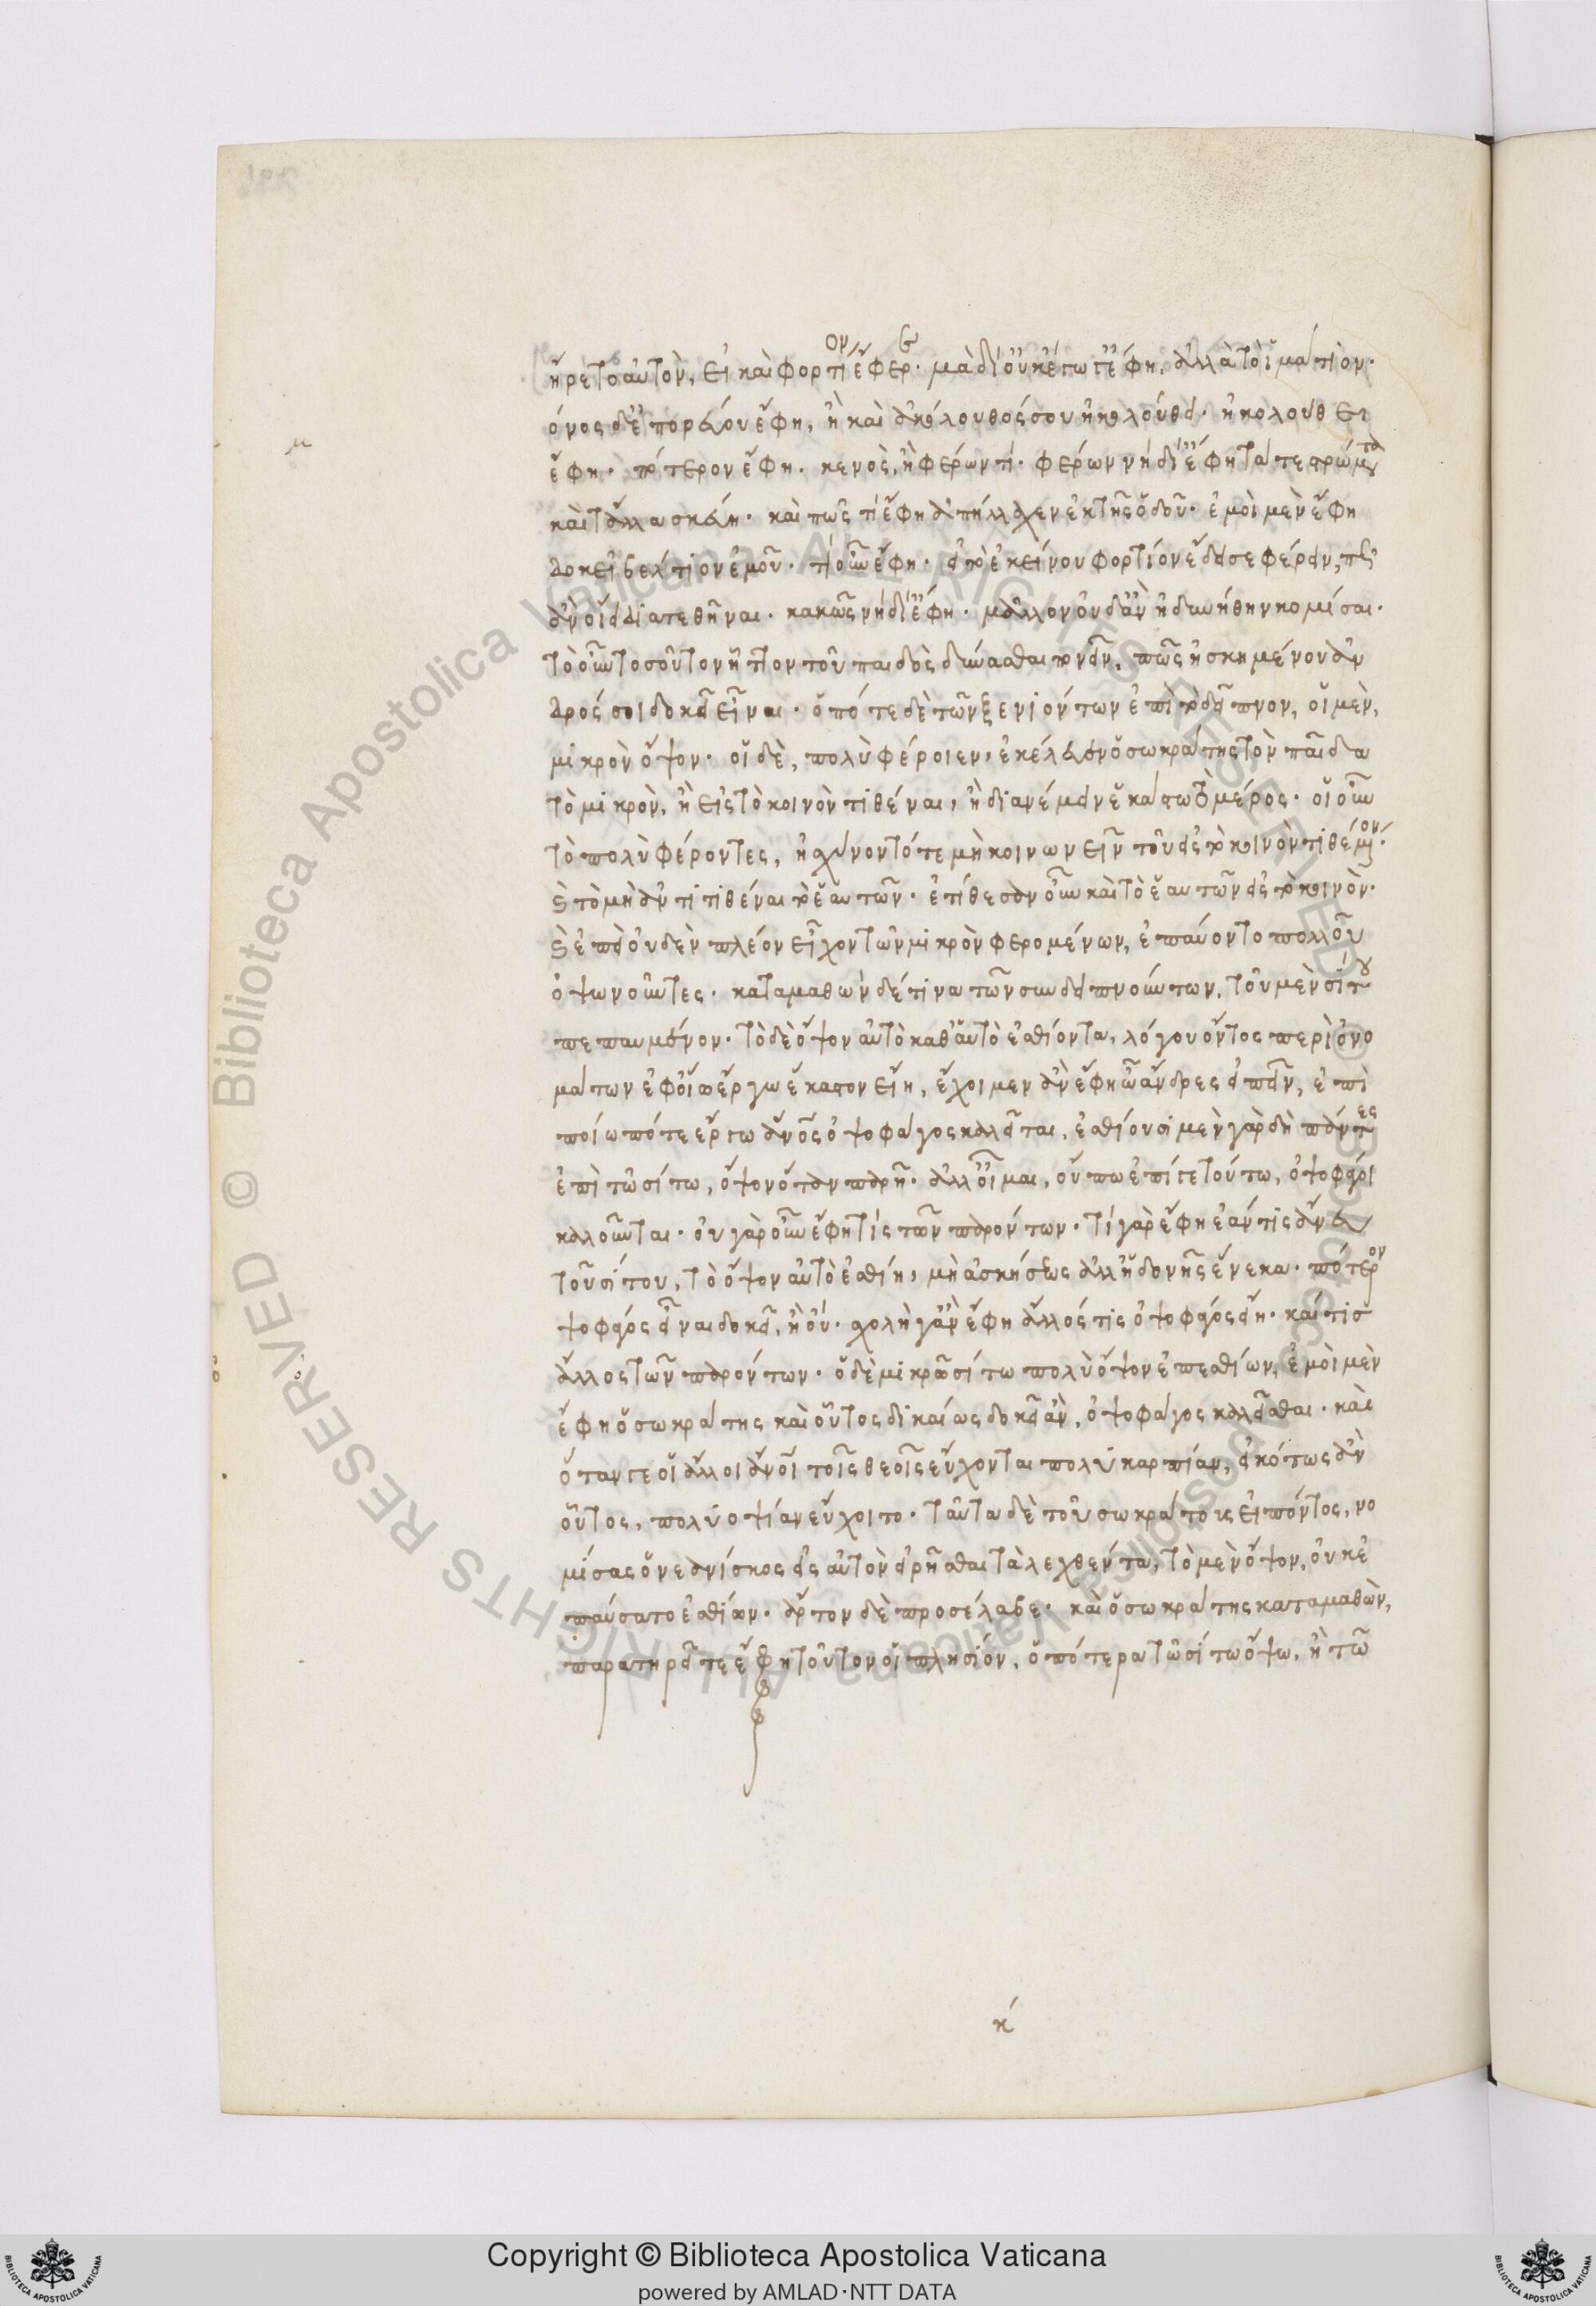 ἤρετο αὐτὸν, εἰ καὶ φορτίον ἔφερε. μὰ δί' οὐκ ἔγωγ' ἔφη, ἀλλὰ τὸ ἱμάτιον.
μόνος δ' ἐπορεύου ἔφη, ἢ καὶ ἀκόλουθός σου ἠκολούθει. ἠκολούθει
ἔφη. πότερον ἔφη. κενὸς, ἢ φέρων τί. φέρων νὴ δί' ἔφη τά τε στρώματα
καὶ τἄλλα σκεύη. καὶ πῶς τί ἔφη ἀπήλλαχεν ἐκ τῆς ὁδοῦ. ἐμοὶ μὲν ἔφη
δοκεῖ βέλτιον ἐμοῦ. τί οὖν ἔφη. εἰ τὸ ἐκείνου φορτίον ἔδει σε φέρειν, πῶς
ἂν οἴει διατεθῆναι. κακῶς νὴ δί' ἔφη. μᾶλλον οὐδ' ἂν ἠδυνήθην κομίσαι.
τὸ οὖν τοσοῦτον ἧττον τοῦ παιδὸς δύνασθαι πονεῖν, πῶς ἠσκημένου ἀν
δρός σοι δοκεῖ εἶναι. ὁπότε δὲ τῶν ξενιόντων ἐπὶ τὸ δεῖπνον, οἱ μὲν,
μικρὸν ὄψον. οἱ δὲ, πολὺ φέροιεν, ἐκέλευεν ὁ σωκράτης τὸν παῖδα
τὸ μικρὸν, ἢ εἰς τὸ κοινὸν τιθέναι, ἢ διανέμειν ἑκάστω τὸ μέρος. οἱ οὖν
τὸ πολὺ φέροντες, ἠσχύνοντό τε μὴ κοινωνεῖν τοῦ εἰς τὸ κοινὸν τιθεμένου.
καὶ τὸ μὴ ἀντιτιθέναι τὸ ἑαυτῶν. ἐτίθεσαν οὖν καὶ τὸ ἑαυτῶν εἰς τὸ κοινὸν.
καὶ ἐπεὶ οὐδὲν πλέον εἶχον τῶν μικρὸν φερομένων, ἐπαύοντο πολλοῦ
ὀψωνοῦντες. καταμαθὼν δέ τινα τῶν συνδειπνούντων, τοῦ μὲν σίτου
πεπαυμένον. τὸ δὲ ὄψον αὐτὸ καθ' αὑτὸ ἐσθίοντα, λόγου ὄντος περὶ ὀνο
μάτων ἐφ' οἵω ἔργω ἕκαστον εἴη, ἔχοιμεν ἂν ἔφη ὦ ἄνδρες εἰπεῖν, ἐπὶ
ποίω πότε ἔργω ἄνος ὀψοφάγος καλεῖται, ἐσθίουσι μὲν γὰρ δὴ πάντες
ἐπὶ τῶ σίτω, ὄψον ὅταν παρῆ. ἀλλ' οἶμαι, οὔπω ἐπί γε τούτω, ὀψοφάγοι
καλοῦνται. οὐ γὰρ οὖν ἔφη τίς τῶν παρόντων. τί γὰρ ἔφη ἐάν τις ἄνευ
τοῦ σίτου, τὸ ὄψον αὐτὸ ἐσθίη, μὴ ἀσκήσεως ἀλλ' ἡδονῆς ἕνεκα. πότερον
ὀψοφάγος εἶναι δοκεῖ, ἢ οὔ. σχολῇ γ' ἂν ἔφη ἄλλός τις ὀψοφάγος εἴη. καί τις
ἄλλος τῶν παρόντων. ὁ δὲ μικρῶ σίτω πολὺ ὄψον ἐπεσθίων, ἐμοὶ μὲν
ἔφη ὁ σωκράτης καὶ οὗτος δικαίως δοκεῖ ἂν, ὀψοφάγος καλεῖσθαι. καὶ
ὅταν γε οἱ ἄλλοι ἄνοι τοῖς θεοῖς εὔχονται πολυκαρπίαν, εἰκότως ἂν
οὗτος, πολυοψίαν εὔχοιτο. ταῦτα δὲ τοῦ σωκράτους εἰπόντος, νο
μίσας ὁ νεανίσκος εἰς αὐτὸν εἰρῆσθαι τὰ λεχθέντα, τὸ μὲν ὄψον, οὐκ ἐ
παύσατο ἐσθίων. ἄρτον δὲ προσέλαβε. καὶ ὁ σωκράτης καταμαθὼν,
παρατηρεῖτε ἔφη τοῦτον οἱ πλησίον, ὁπότερα τῶ σίτω ὄψω, ἢ τῶ
κ'
Copyright © Biblioteca Apostolica Vaticana
powered by AMLAD·NTT DATA